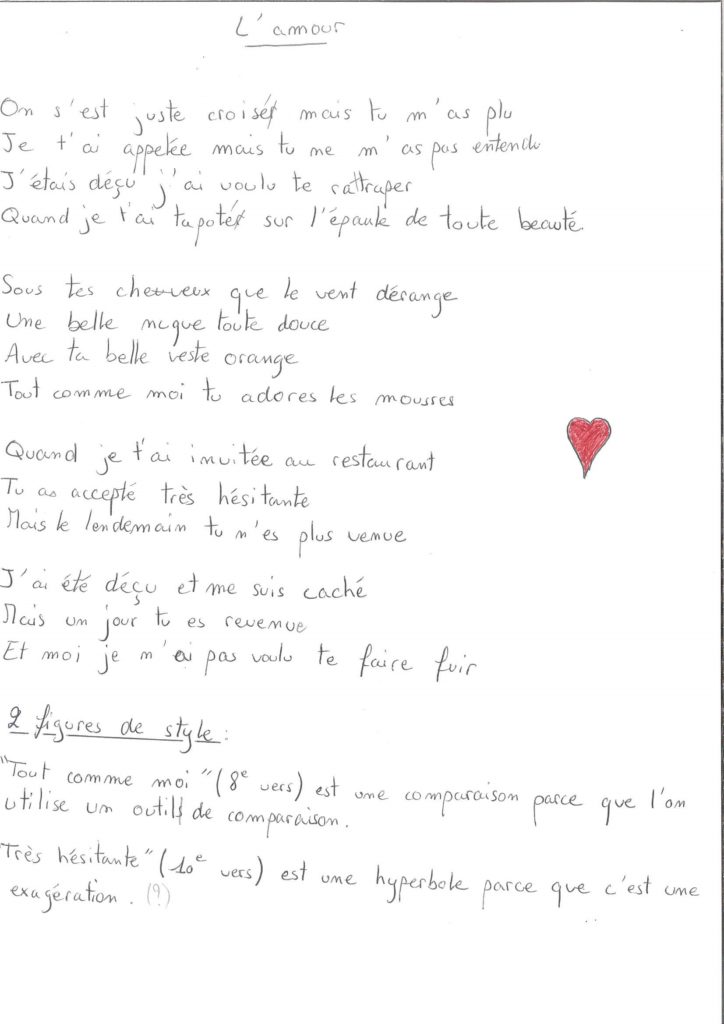 L'amour
On s'est juste croisés mais tu m'as plu
Je t'ai appelée mais tu me m'as pas entendu
J'étais déçu j'ai voulu te rattraper
Quand je t'ai tapotés sur l'épaule de toute beauté.
Sous tes cheveux que le vent dérange
Une belle nuque toute douce
Avec ta belle veste orange
Tout comme moi tu adores les mousses
Quand je t'ai invitée au restaurant
Tu as accepté très hésitante
Mais le lendemain tu n'es plus venue
J'ai été déçu et me suis caché
Mais un jour tu es revenue
Et moi je n'ai pas voulu te faire fuir
2 figures de style :
"Tout comme moi" (8e vers) est une comparaison parce que l'on
utilise un outils de comparaison.
"Très hésitante" (10e vers) est une hyperbole parce que c'est une
exagération. (?)